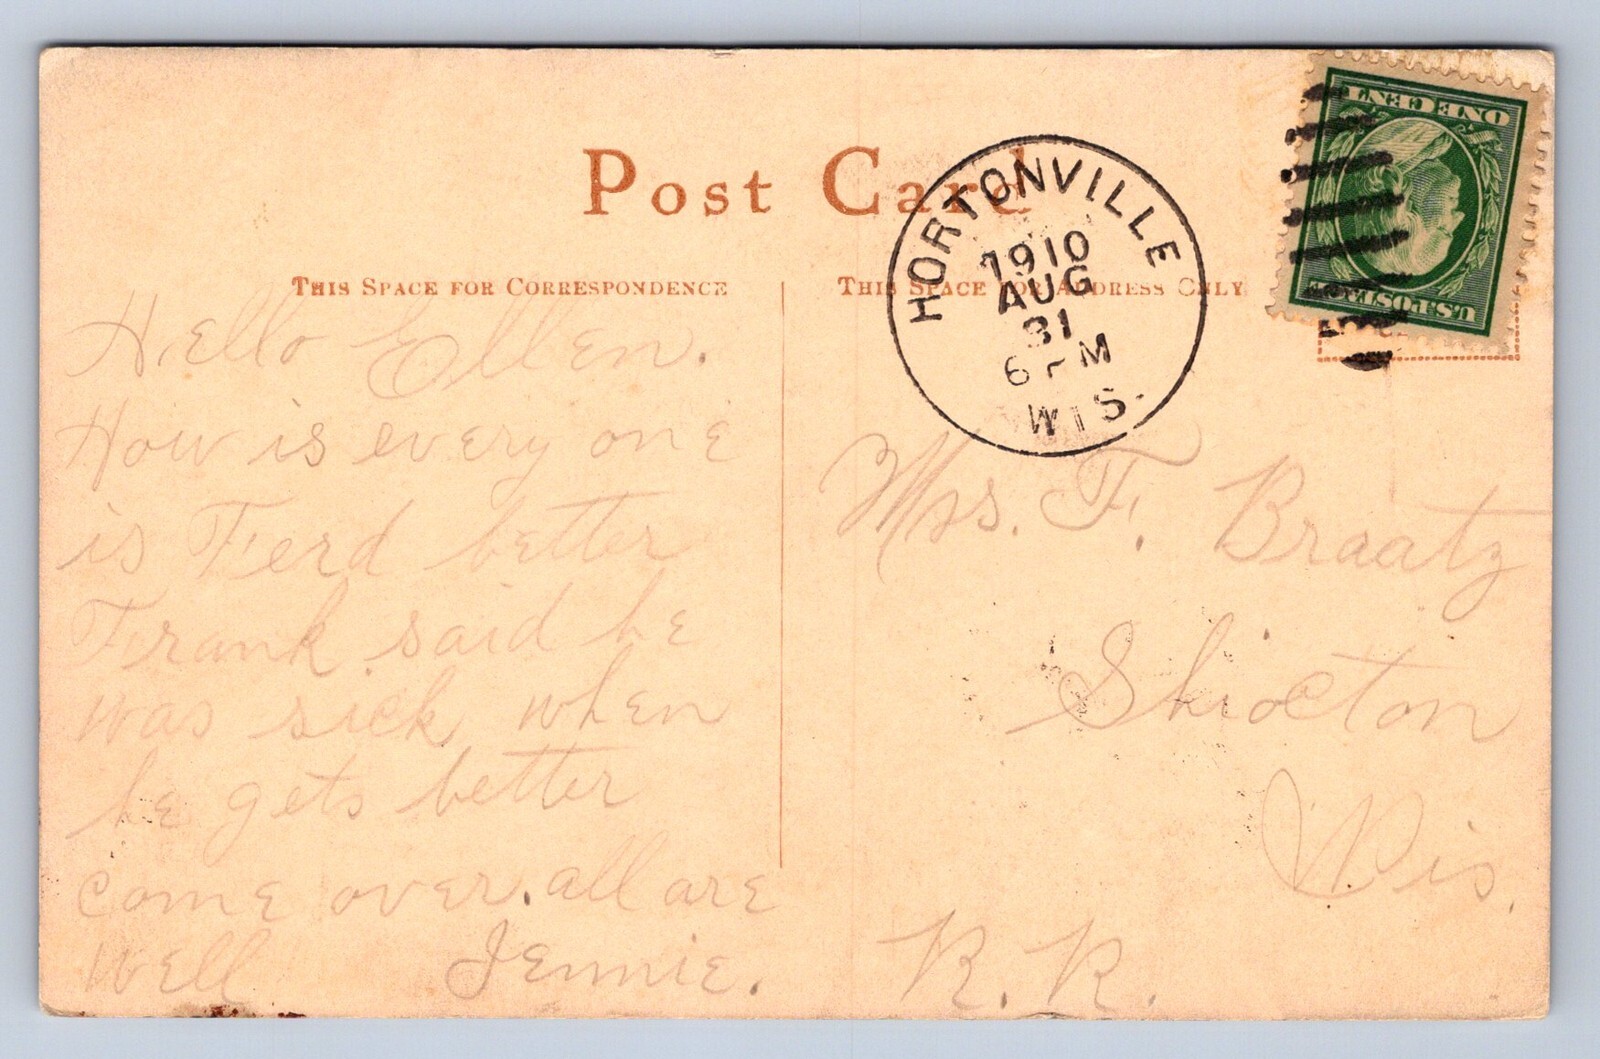 Post Card
THIS SPACE FOR CORRESPONDENCE
THIS SPACE FOR ADDRESS ONLY
HORTONVILLE
1910
AUG
31
6 PM
WIS.
ONE CENT
U.S. POSTAGE
Hello Ellen.
How is every one
is Ferd better
Frank said he
was sick when
he gets better
come over. all are
well Jennie.
Mrs. F. Braatz
Shiocton
Wis.
R. R.